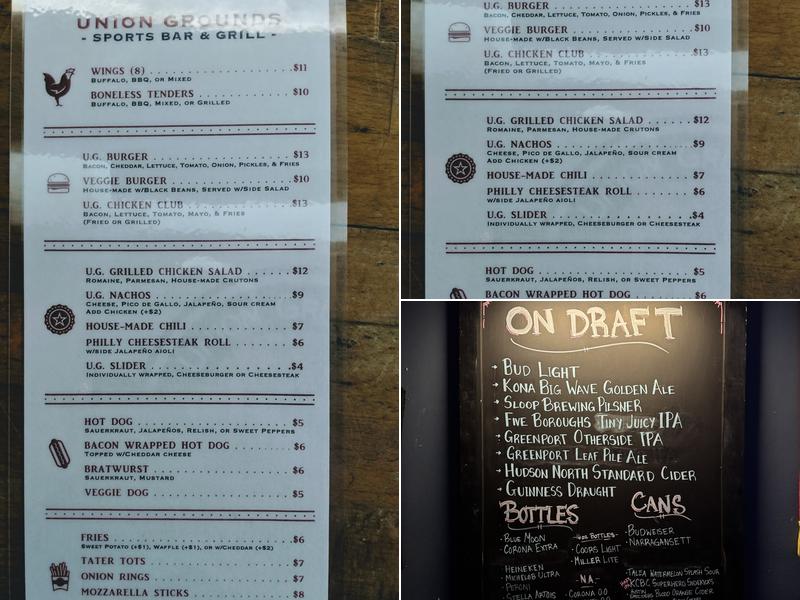 UNION GROUNDS
- SPORTS BAR & GRILL -
WINGS (8) . . . . . . . . . . . . . . . . . . . .$11
BUFFALO, BBQ, OR MIXED
BONELESS TENDERS . . . . . . . . . . $10
BUFFALO, BBQ, MIXED, OR GRILLED
U.G. BURGER . . . . . . . . . . . . . . . . . . . $13
BACON, CHEDDAR, LETTUCE, TOMATO, ONION, PICKLES, & FRIES
VEGGIE BURGER . . . . . . . . . . . . . . . $10
HOUSE-MADE W/BLACK BEANS, SERVED W/SIDE SALAD
U.G. CHICKEN CLUB . . . . . . . . . . . . .$13
BACON, LETTUCE, TOMATO, MAYO, & FRIES
(FRIED OR GRILLED)
U.G. GRILLED CHICKEN SALAD . . . . . . $12
ROMAINE, PARMESAN, HOUSE-MADE CRUTONS
U.G. NACHOS . . . . . . . . . . . . . . . . . . . $9
CHEESE, PICO DE GALLO, JALAPEÑO, SOUR CREAM
ADD CHICKEN (+$2)
HOUSE-MADE CHILI . . . . . . . . . . . . . . $7
PHILLY CHEESESTEAK ROLL . . . . . . . . $6
W/SIDE JALAPEÑO AIOLI
U.G. SLIDER . . . . . . . . . . . . . . . . . . .$4
INDIVIDUALLY WRAPPED, CHEESEBURGER OR CHEESESTEAK
HOT DOG . . . . . . . . . . . . . . . . . . . . . . $5
SAUERKRAUT, JALAPEÑOS, RELISH, OR SWEET PEPPERS
BACON WRAPPED HOT DOG . . . . . . . . $6
TOPPED W/CHEDDAR CHEESE
BRATWURST . . . . . . . . . . . . . . . . . . . $6
SAUERKRAUT, MUSTARD
VEGGIE DOG . . . . . . . . . . . . . . . . . . . $5
FRIES . . . . . . . . . . . . . . . . . . . . . . . .$6
SWEET POTATO (+$1), WAFFLE (+$1), OR W/CHEDDAR (+$2)
TATER TOTS . . . . . . . . . . . . . . . . . . . $7
ONION RINGS . . . . . . . . . . . . . . . . . . $7
MOZZARELLA STICKS . . . . . . . . . . . . . $8
U.G. BURGER . . . . . . . . . . . . . . . . . . . $13
BACON, CHEDDAR, LETTUCE, TOMATO, ONION, PICKLES, & FRIES
VEGGIE BURGER . . . . . . . . . . . . . . . $10
HOUSE-MADE W/BLACK BEANS, SERVED W/SIDE SALAD
U.G. CHICKEN CLUB . . . . . . . . . . . . .$13
BACON, LETTUCE, TOMATO, MAYO, & FRIES
(FRIED OR GRILLED)
U.G. GRILLED CHICKEN SALAD . . . . . . $12
ROMAINE, PARMESAN, HOUSE-MADE CRUTONS
U.G. NACHOS . . . . . . . . . . . . . . . . . . . $9
CHEESE, PICO DE GALLO, JALAPEÑO, SOUR CREAM
ADD CHICKEN (+$2)
HOUSE-MADE CHILI . . . . . . . . . . . . . . $7
PHILLY CHEESESTEAK ROLL . . . . . . . . $6
W/SIDE JALAPEÑO AIOLI
U.G. SLIDER . . . . . . . . . . . . . . . . . . .$4
INDIVIDUALLY WRAPPED, CHEESEBURGER OR CHEESESTEAK
HOT DOG . . . . . . . . . . . . . . . . . . . . . . $5
SAUERKRAUT, JALAPEÑOS, RELISH, OR SWEET PEPPERS
BACON WRAPPED HOT DOG . . . . . . . . $6
ON DRAFT
→ BUD LIGHT
→ KONA BIG WAVE GOLDEN ALE
→ SLOOP BREWING PILSNER
→ FIVE BOROUGHS TINY JUICY IPA
→ GREENPORT OTHERSIDE IPA
→ GREENPORT LEAF PILE ALE
→ HUDSON NORTH STANDARD CIDER
→ GUINNESS DRAUGHT
BOTTLES
· BLUE MOON
CORONA EXTRA
HEINEKEN
· MICHELOB ULTRA
· PERONI
· STELLA ARTOIS
BOTTLES-
· COORS LIGHT
· MILLER LITE
- NA -
· CORONA 0.0
CANS
· BUDWEISER
· NARRAGANSETT
· TALEA WATERMELON SPLASH SOUR
· KCBC SUPERHERO SIDEKICKS
BLOOD ORANGE CIDER